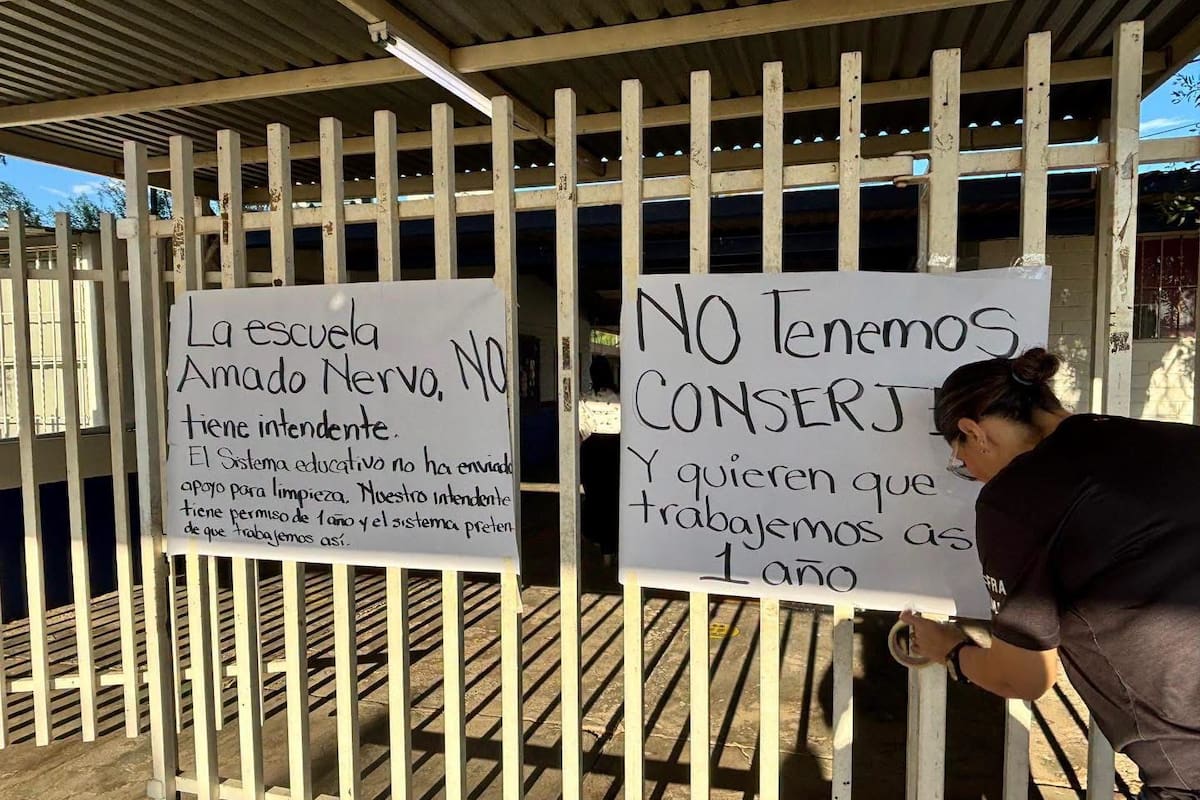 La escuela
Amado Nervo, NO
tiene intendente.
El Sistema educativo no ha enviado
apoyo para limpieza. Nuestro intendente
tiene permiso de 1 año y el sistema preten
de que trabajemos así.
NO Tenemos
CONSERJE
Y quieren que
trabajemos asi
1 año